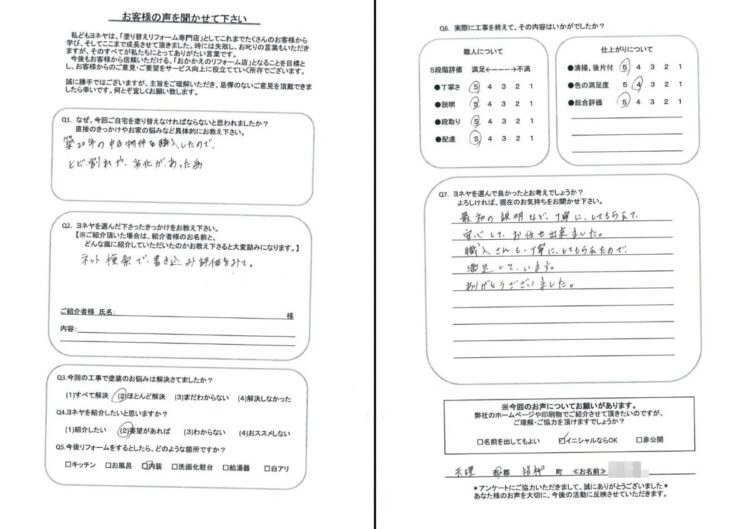 お客様の声を聞かせて下さい
私どもヨネヤは、「塗り替えリフォーム専門店」としてこれまでたくさんのお客様から
学び、そしてここまで成長させて頂きました。時には失敗し、お叱りの言葉もいただき
ますが、そのすべてが私たちにとってありがたい言葉です。
今後もお客様から信頼いただける、「おかかえのリフォーム店」となることを目標と
し、お客様からのご意見・ご要望をサービス向上に役立てていく所存でございます。
誠に勝手ではございますが、主旨をご理解いただき、忌憚のないご意見を頂戴できま
したら幸いです。何とぞ宜しくお願い致します。
Q1. なぜ、今回ご自宅を塗り替えなければならないと思われましたか?
直後のきっかけやお家の悩みなど具体的にお教え下さい。
築20年の中古物件を購入したので、
ヒビ割れや、劣化があった為
Q2. ヨネヤを選んだ下さったきっかけをお教え下さい。
【※ご紹介頂いた場合は、紹介者様のお名前と、
どんな風に紹介していただいたのかお教え下さると大変励みになります。】
ネット検索で、書き込み評価をみて。
ご紹介者様 氏名: 様
内容:
Q3.今回の工事で塗装のお悩みは解決できましたか?
(1)すべて解決 (2)ほとんど解決 (3)まだわからない (4)解決しなかった
Q4.ヨネヤを紹介したいと思いますか?
(1)紹介したい (2)要望があれば (3)わからない (4)おススメしない
Q5.今後リフォームをするとしたら、どのような箇所ですか?
□キッチン □お風呂 ☑内装 □洗面化粧台 □給湯器 □白アリ
Q6. 実際に工事を終えて、その内容はいかがでしたか?
職人について
5段階評価 満足←----→不満
●丁寧さ 5 4 3 2 1
●説明 5 4 3 2 1
●段取り 5 4 3 2 1
●配慮 5 4 3 2 1
仕上がりについて
●清掃、後片付 5 4 3 2 1
●色の満足度 5 4 3 2 1
●総合評価 5 4 3 2 1
Q7. ヨネヤを選んで良かったとお考えでしょうか?
よろしければ、現在のお気持ちをお聞かせ下さい。
最初の説明など、丁寧にしてもらえて、
安心して、お任せ出来ました。
職人さんも、丁寧にしてもらえたので、
満足して、います。
ありがとうございました。
※今回のお声についてお願いがあります。
弊社のホームページや印刷物でご紹介させて頂きたいのですが、
ご理解・ご協力を頂けますでしょうか?
□名前を出してもよい ☑イニシャルならOK □非公開
天理 市郡 町 <お名前>
*アンケートにご協力いただきまして、誠にありがとうございました*
あなた様のお声を大切に、今後の活動に反映させていただきます。